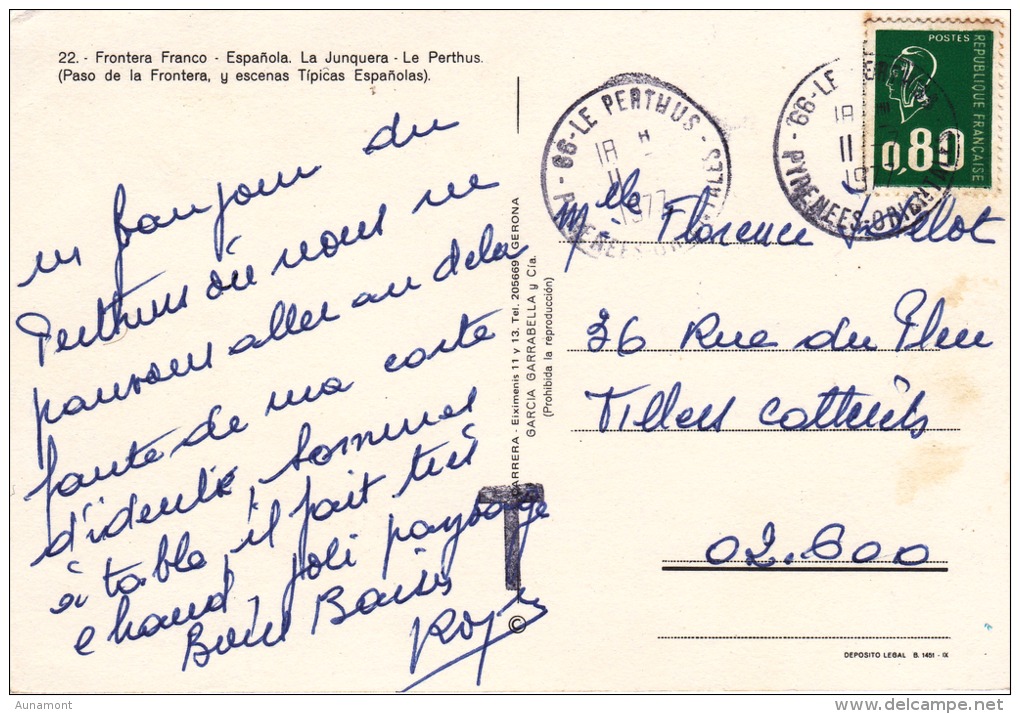 22. - Frontera Franco - Española. La Junquera - Le Perthus.
(Paso de la Frontera, y escenas Típicas Españolas).
un bonjour du
Perthus où nous ne
pouvons aller au delà
faute de ma carte
d'identité, sommes
à table, il fait très
chaud, joli paysage
Bons Baisers
CARRERA - Eiximenis 11 y 13. Tel. 205669 GERONA
GARCIA GARRABELLA y Cía.
(Prohibida la reproducción)
T
©
66-LE PERTHUS
18 H
11
1977
66-LE
PYRENEES-ORIENTALES
18 H
11
1977
POSTES
REPUBLIQUE FRANÇAISE
0,80
Mlle Florence
36 Rue du
Villers Cotterêts
02.600
DEPOSITO LEGAL B. 1451 - IX
Aunamont
delcampe.net